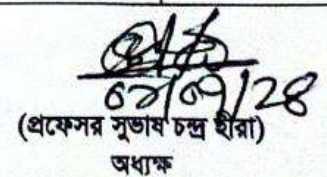 ০২/০৭/২৪
(প্রফেসর সুভাষ চন্দ্র হীরা)
অধ্যক্ষ